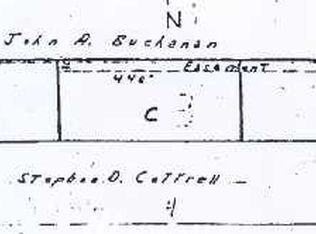 N
John A. Buchanan
Easement
440'
C
Stephen D. Cottrell